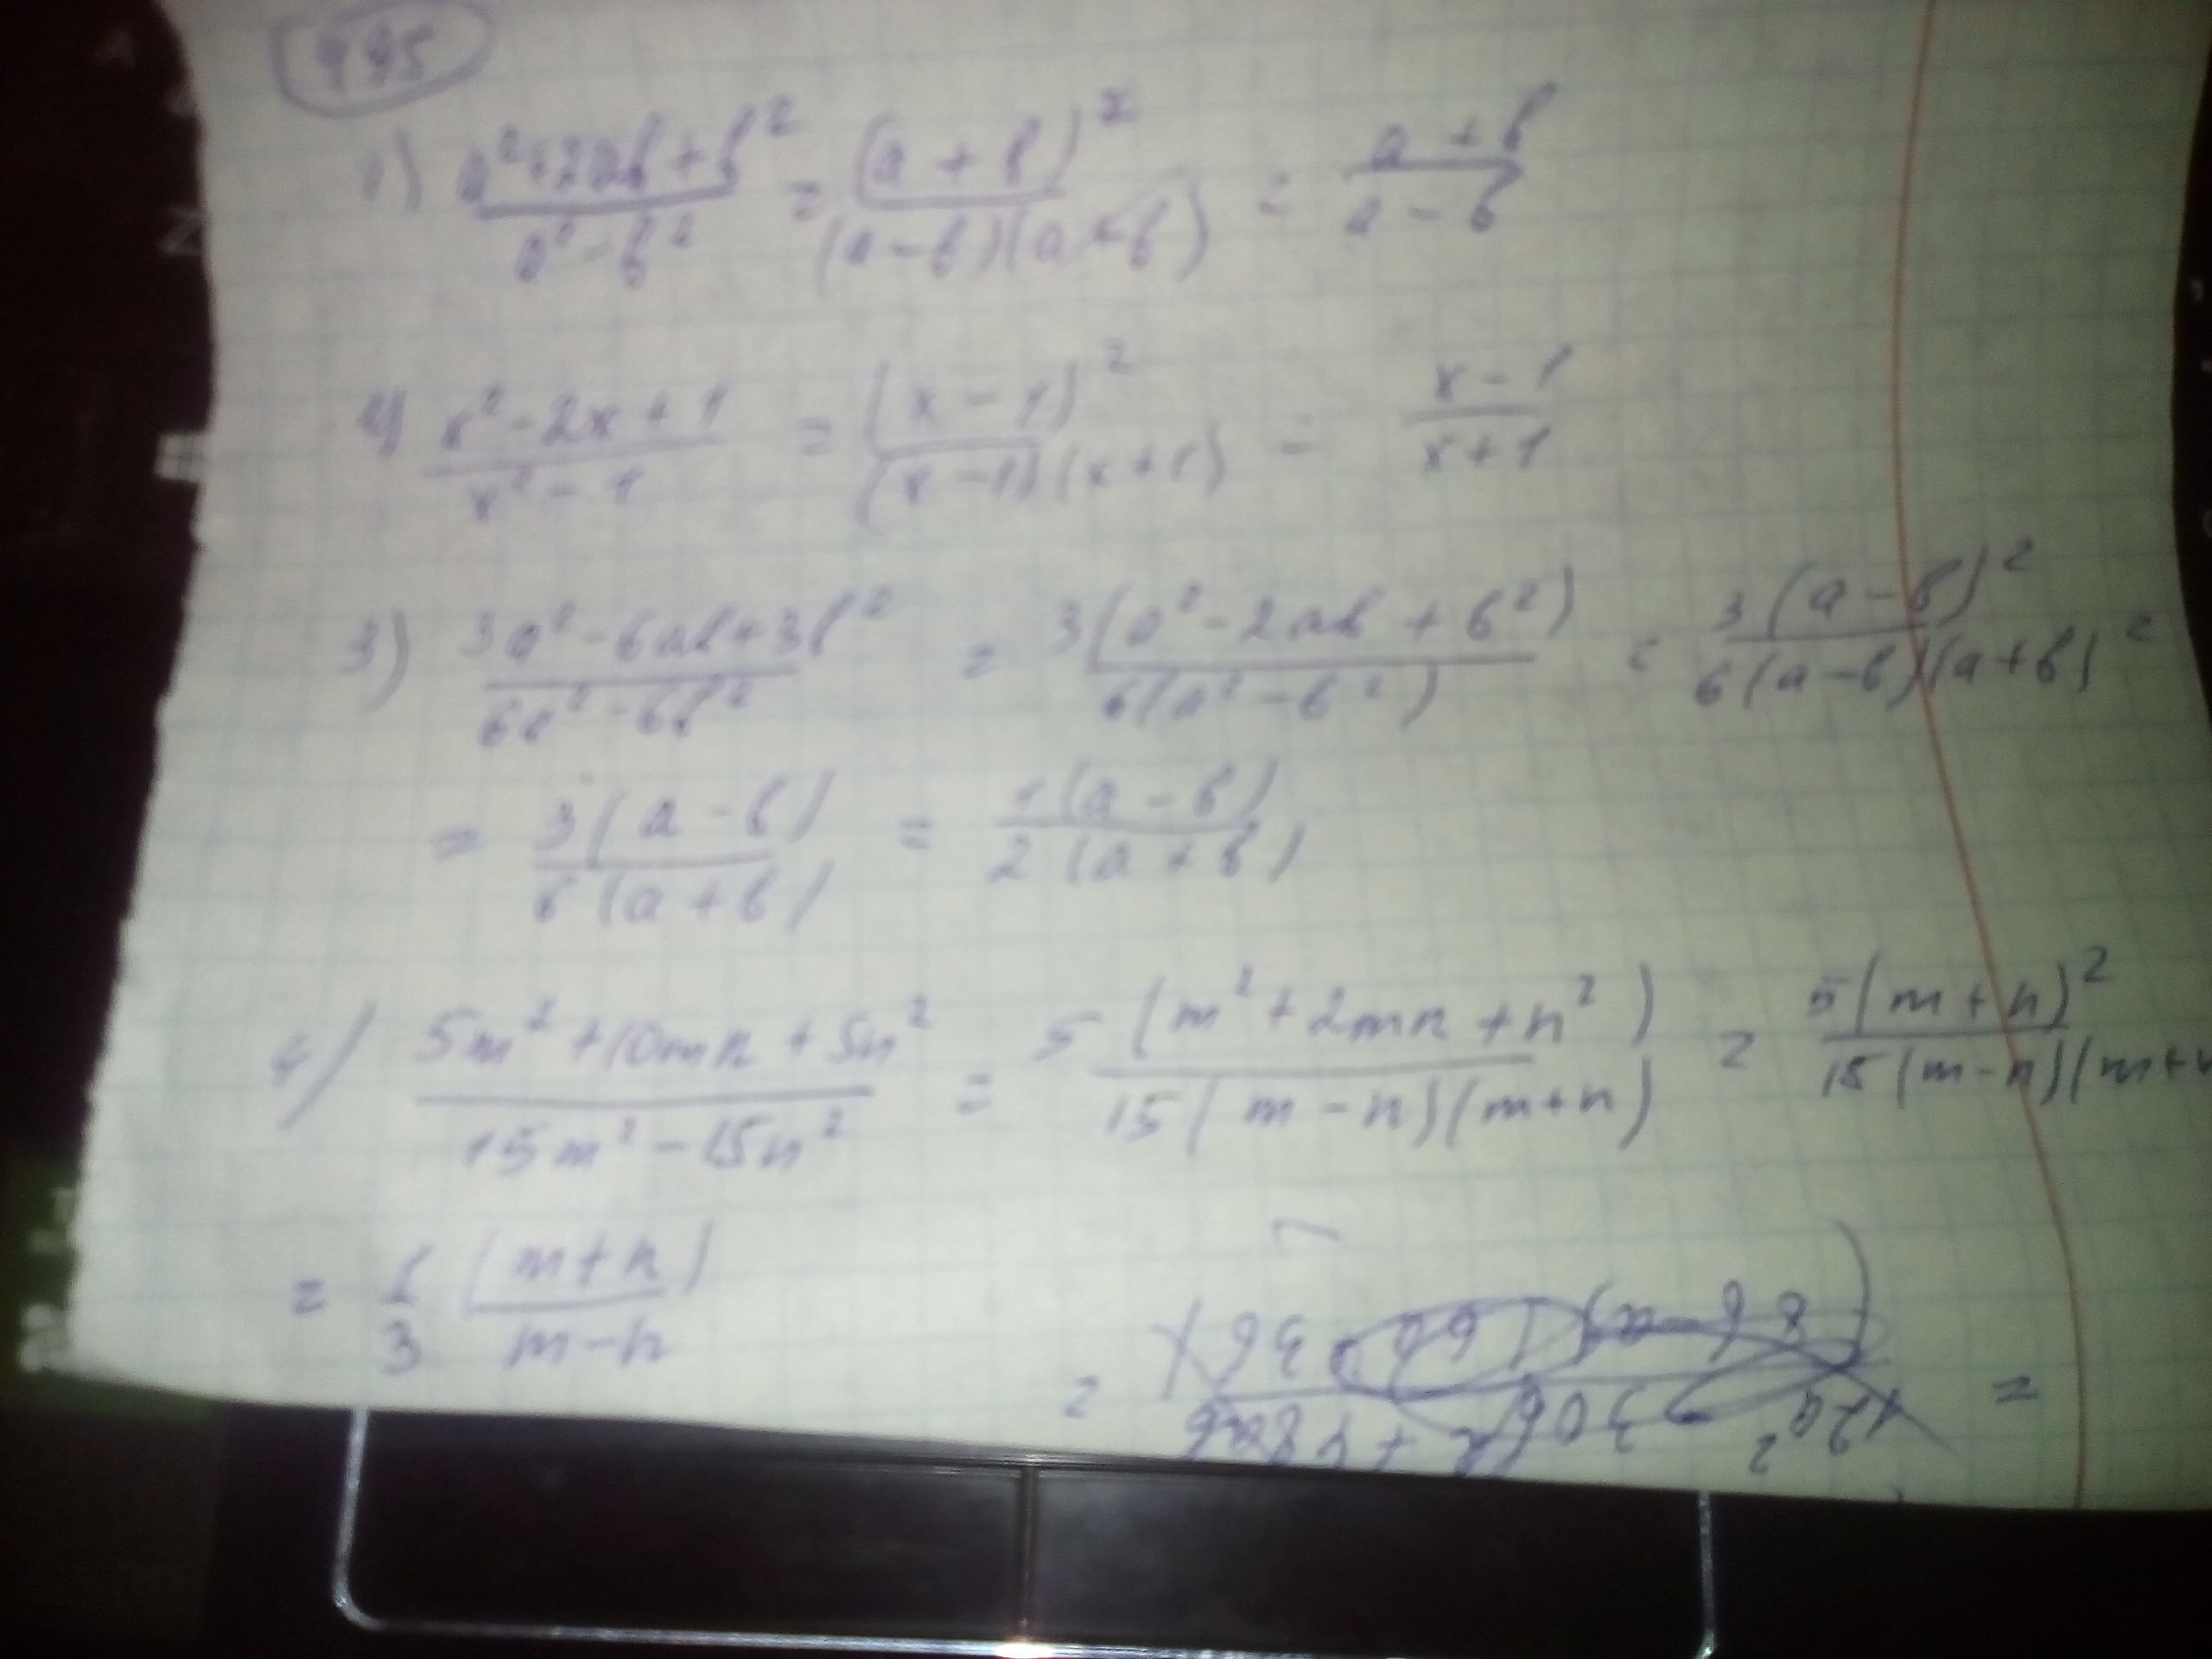 445
1) (a²+2ab+b²)/(a²-b²) = (a+b)²/((a-b)(a+b)) = (a+b)/(a-b)
(x²-2x+1)/(x²-1) = (x-1)²/((x-1)(x+1)) = (x-1)/(x+1)
3) (3a²-6ab+3b²)/(6a²-6b²) = 3(a²-2ab+b²)/(6(a²-b²)) = 3(a-b)²/(6(a-b)(a+b)) =
= 3(a-b)/(6(a+b)) = 1(a-b)/(2(a+b))
4) (5m²+10mn+5n²)/(15m²-15n²) = 5(m²+2mn+n²)/(15(m-n)(m+n)) = 5(m+n)²/(15(m-n)(m+n
= 1/3 (m+n)/(m-n)